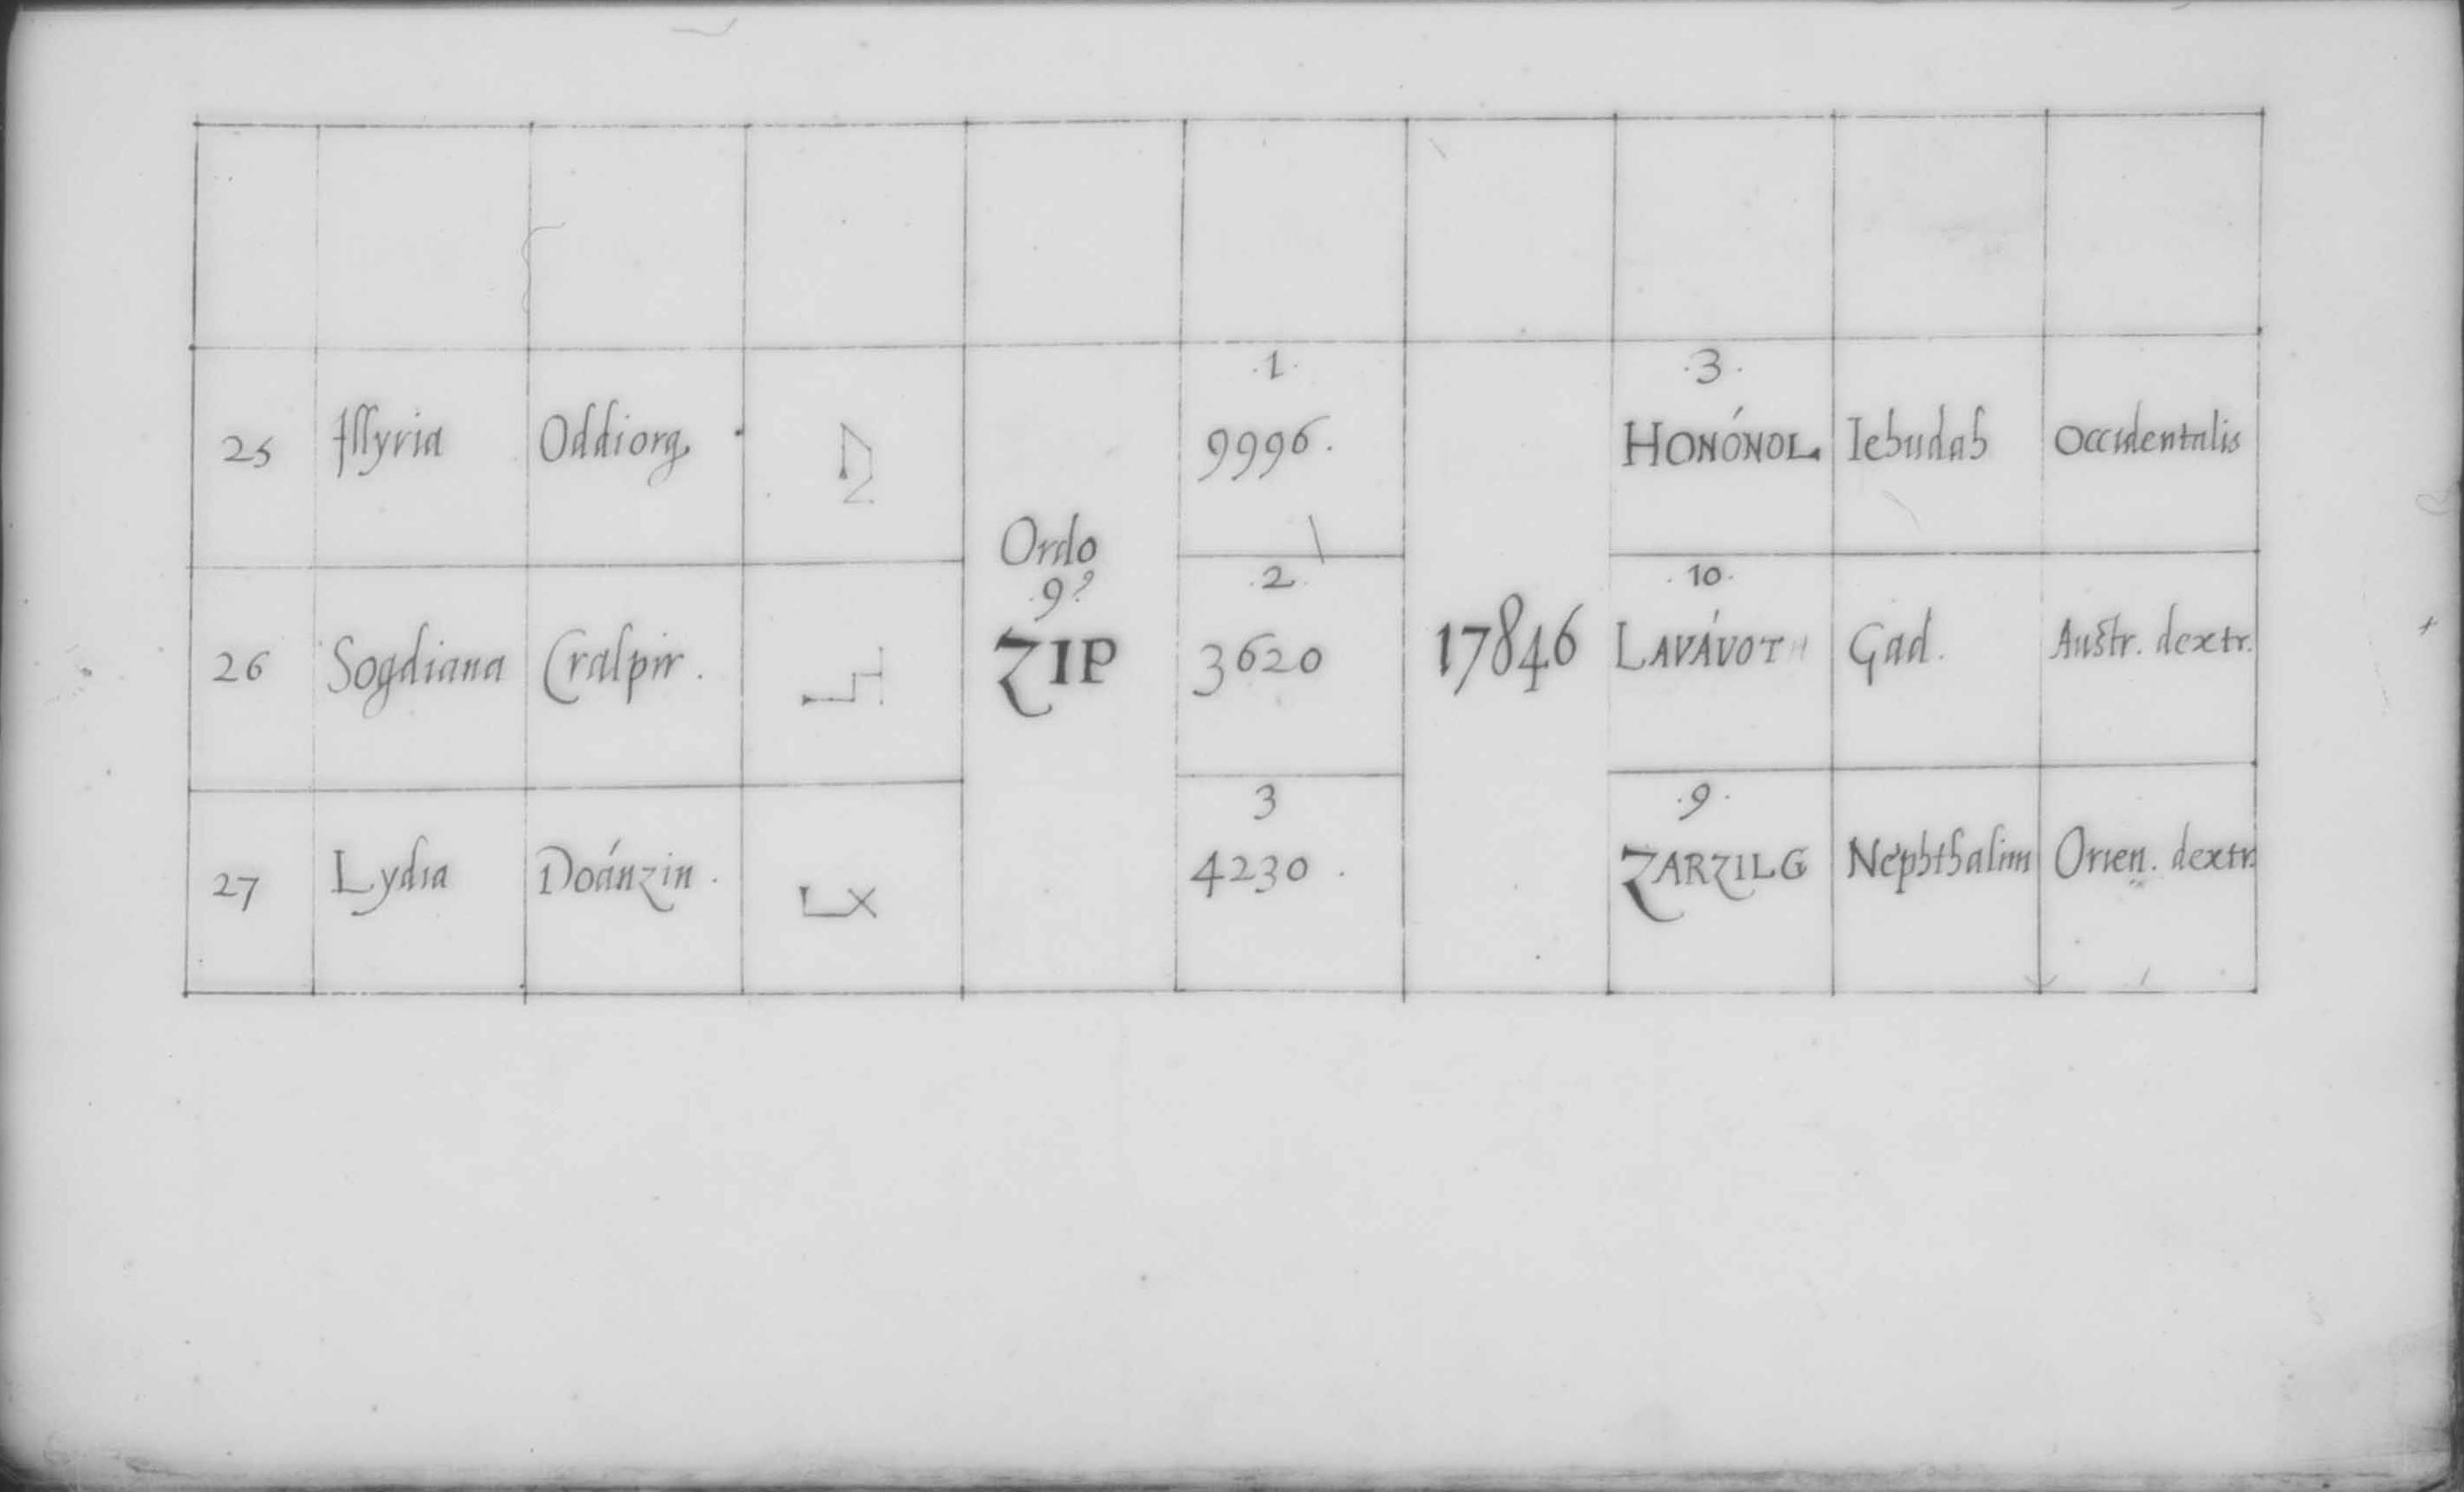 25 Illyria Oddiorg. 1. 9996. .3. HONÓNOL Iehudah Occidentalis
Ordo
9?
ZIP
17846
26 Sogdiana Cralpir. .2. 3620 .10. LAVÁVOTH Gad. Austr. dextr.
27 Lydia Doánzin. 3 4230. .9. ZARZILG Nephthalim Orien. dextr.